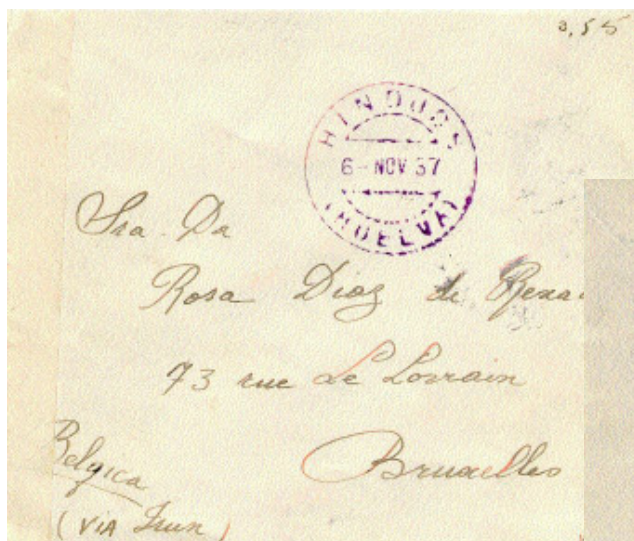 3,55
HINOJOS
6-NOV 37
(HUELVA)
Sra. Da
Rosa Diaz de
73 rue Le Lorrain
Bruxelles
Belgica
(VIA Irun)